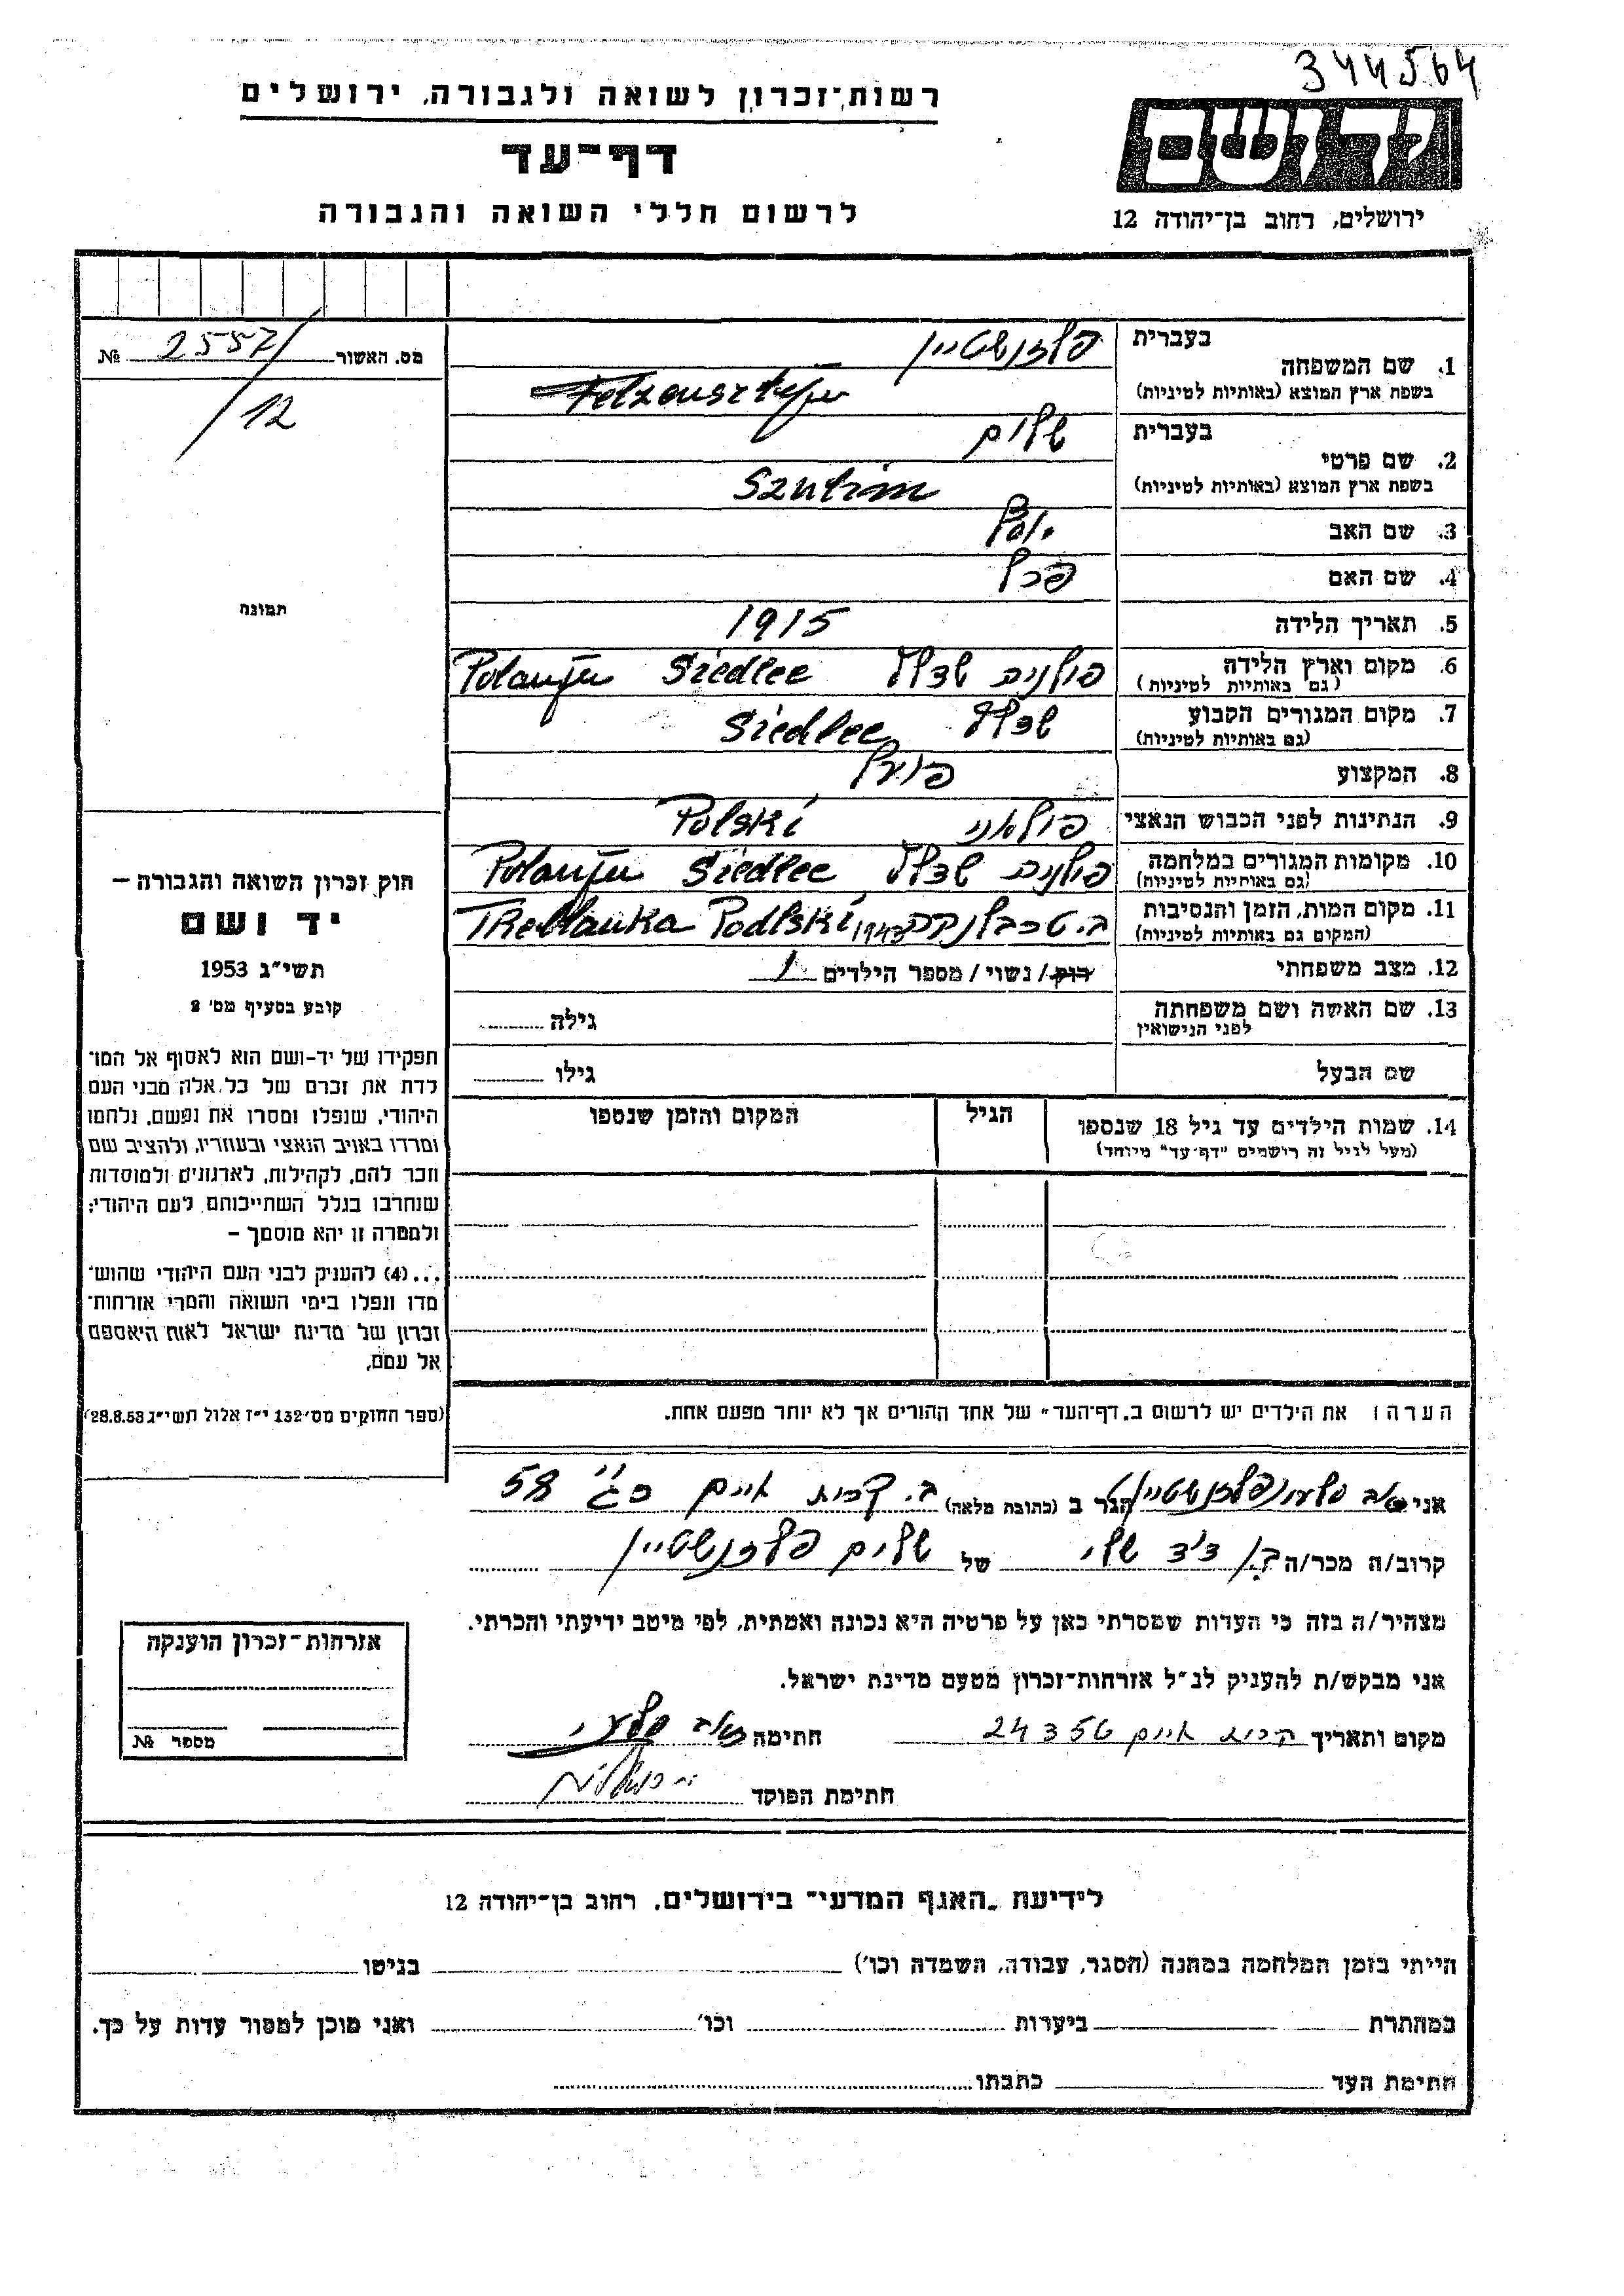 344564
רשות-זכרון לשואה ולגבורה, ירושלים
ידושם
דף-עד
ירושלים, רחוב בן-יהודה 12
לרשום חללי השואה והגבורה
מס. האשור 2557/12 №
1. שם המשפחה
בעברית פלזנשטיין
בשפת ארץ המוצא (באותיות לטיניות) Felzensztejn
2. שם פרטי
בעברית שלום
בשפת ארץ המוצא (באותיות לטיניות)
3. שם האב
4. שם האם
5. תאריך הלידה 1915
6. מקום וארץ הלידה פולניה שדלץ Siedlce
(גם באותיות לטיניות)
7. מקום המגורים הקבוע שדלץ Siedlce
(גם באותיות לטיניות)
8. המקצוע פועל
9. הנתינות לפני הכבוש הנאצי פולאני Polski
10. מקומות המגורים במלחמה פולניה שדלץ Siedlce
(גם באותיות לטיניות)
11. מקום המות, הזמן והנסיבות ב. טרבלנקה 1943 Podlski
(המקום גם באותיות לטיניות)
12. מצב משפחתי רוק / נשוי / מספר הילדים 1
13. שם האשה ושם משפחתה גילה
לפני הנישואין
שם הבעל גילו
14. שמות הילדים עד גיל 18 שנספו הגיל המקום והזמן שנספו
(מעל לגיל זה רושמים "דף-עד" מיוחד)
הערה: את הילדים יש לרשום ב„דף-העד" של אחד ההורים אך לא יותר מפעם אחת.
תמונה
חוק זכרון השואה והגבורה –
יד ושם
תשי"ג 1953
קובע בסעיף מס' 2
תפקידו של יד-ושם הוא לאסוף אל המו־
לדת את זכרם של כל אלה מבני העם
היהודי, שנפלו ומסרו את נפשם, נלחמו
ומרדו באויב הנאצי ובעוזריו, ולהציב שם
וזכר להם, לקהילות, לארגונים ולמוסדות
שנחרבו בגלל השתייכותם לעם היהודי;
ולמטרה זו יהא מוסמך –
...(4) להעניק לבני העם היהודי שהוש־
מדו ונפלו בימי השואה והמרי אזרחות־
זכרון של מדינת ישראל לאות היאספם
אל עמם.
(ספר החוקים מס' 132 י"ז אלול תשי"ג 28.8.53)
אני סלעי פלזנשטיין הגר ב (כתובת מלאה) ב. קרית חיים 58
קרוב/ה מכר/ה בן דוד שלי של שלום פלזנשטיין
מצהיר/ה בזה כי העדות שמסרתי כאן על פרטיה היא נכונה ואמתית, לפי מיטב ידיעתי והכרתי.
אני מבקש/ת להעניק לנ"ל אזרחות-זכרון מטעם מדינת ישראל.
מקום ותאריך קרית חיים 24 3 56 חתימה סלעי
חתימת הפוקד
אזרחות-זכרון הוענקה
מספר №
לידיעת „האגף המדעי" בירושלים, רחוב בן-יהודה 12
הייתי בזמן המלחמה במחנה (הסגר, עבודה, השמדה וכו') בגיטו
במחתרת ביערות וכו' ואני מוכן למסור עדות על כך.
חתימת העד כתבתו